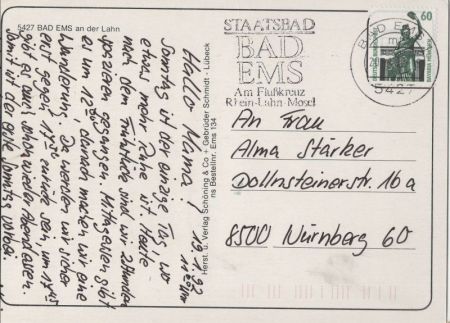 5427 BAD EMS an der Lahn
Hallo Mama! 19.1.92
Sonntag ist der einzige Tag, wo
etwas mehr Ruhe ist. Heute
nach dem Frühstück sind wir 2 Stunden
spazieren gegangen. Mittagessen gibt
es um 12⁰⁰, danach machen wir eine
Wanderung. Da werden wir sicher
erst gegen zurück sein, um 17⁴⁵
gibt es auch schon wieder Abendessen.
Somit ist der erste Sonntag vorbei.
Herst. u. Verlag Schöning & Co + Gebrüder Schmidt · Lübeck
Bestellnr. Ems 134
STAATSBAD
BAD
EMS
Am Flußkreuz
Rhein-Lahn-Mosel
BAD EMS
5427
60
An Frau
Alma Stärker
Dollnsteinerstr. 16a
8500 Nürnberg 60